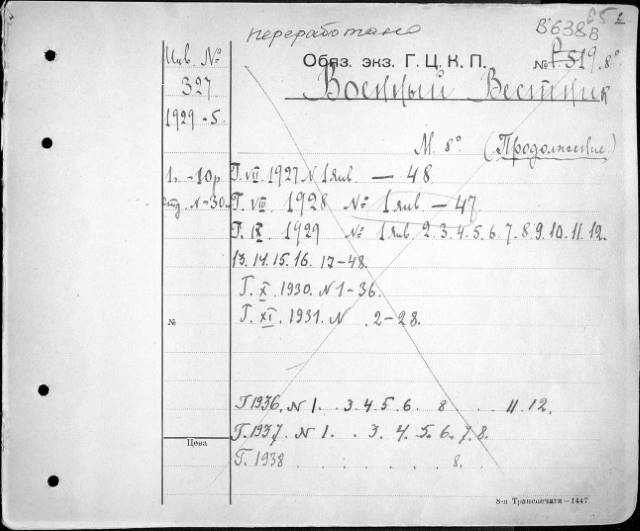 переработано
В638В
Обяз. экз. Г. Ц. К. П.
№ 8°
Военный Вестник
Инв. №
327
1929-5.
М. 8° (Продолжение)
1. -10р
N-30
Г. VII. 1927 N 1 янв — 48
Г. VIII. 1928 № 1 янв — 47
Г. IX. 1929 № 1 янв 2. 3. 4. 5. 6. 7. 8. 9. 10. 11. 12.
13. 14. 15. 16. 17-48.
Г. X. 1930. N 1-36.
Г. XI. 1931. N . 2-28.
№
Г 1936, N 1. . 3. 4. 5. 6. 8 . . 11. 12.
Г. 1937. N 1. . 3. 4. 5. 6. 7. 8.
Цена
Г. 1938 . . . . . . . 8.
8-я Транспечати—1447